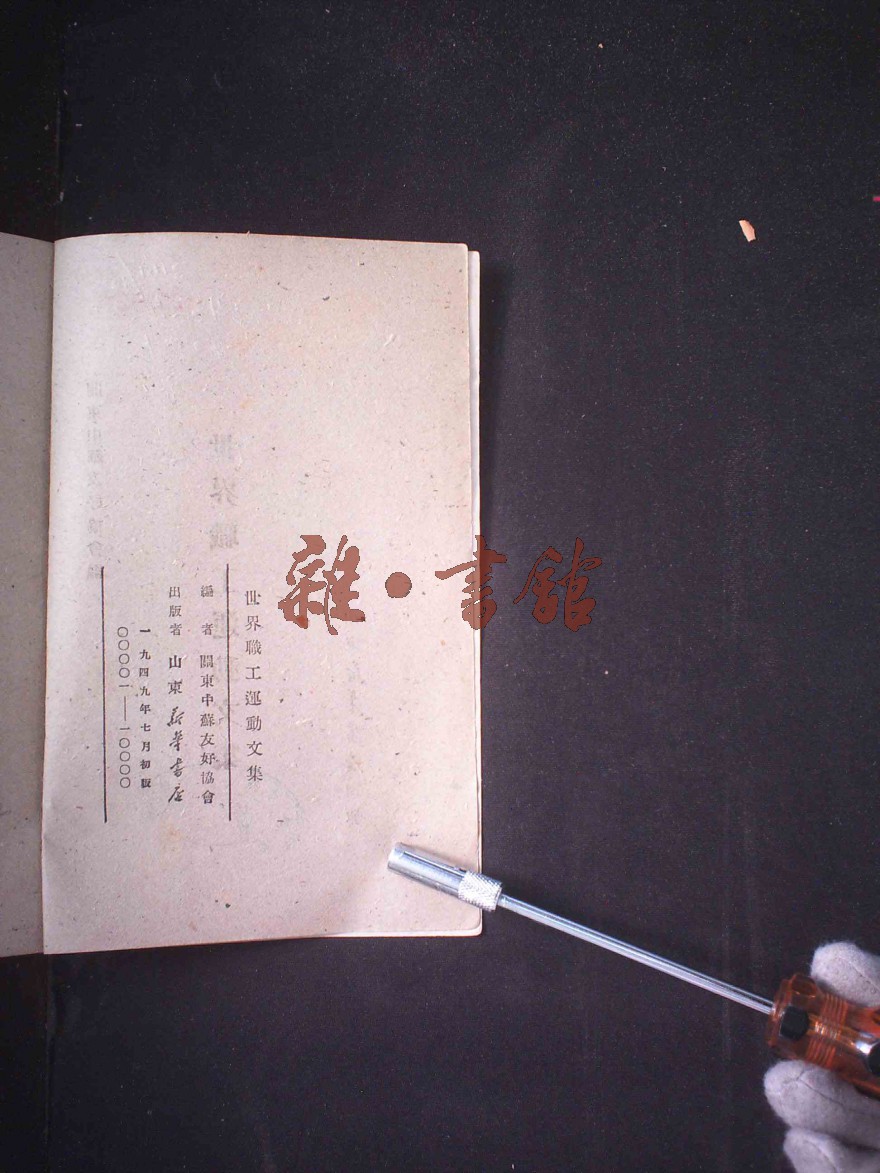 世界職工運動文集
編者 關東中蘇友好協會
出版者 山東新華書店
一九四九年七月初版
〇〇〇〇一——一〇〇〇〇
雜·書館